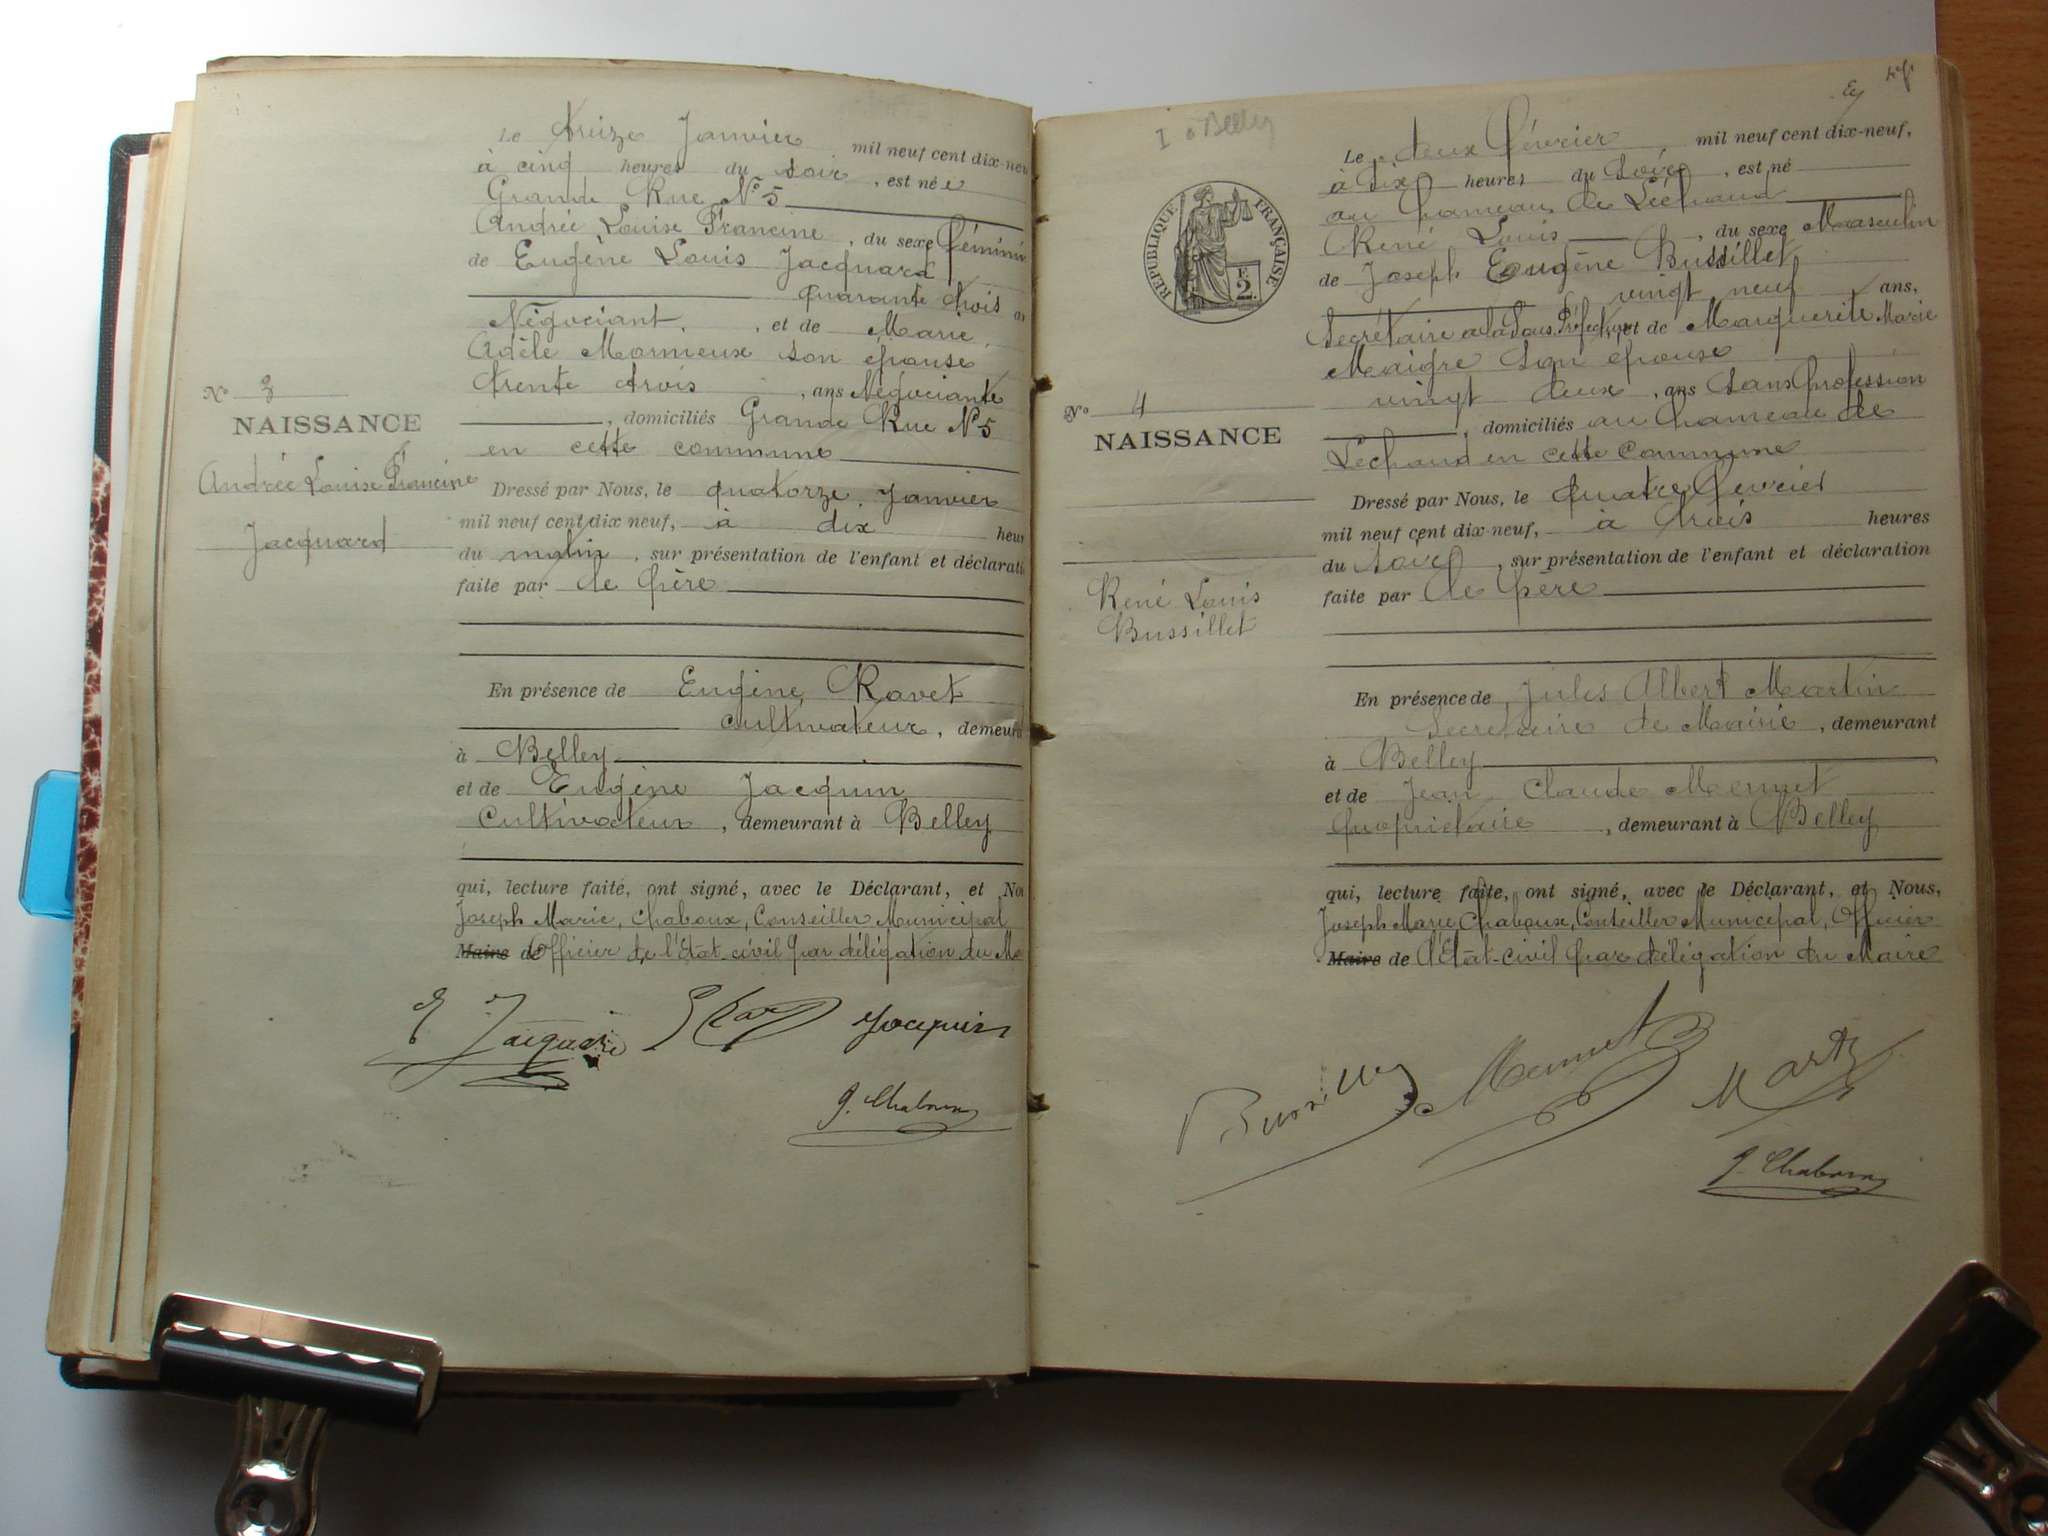 Le treize Janvier mil neuf cent dix-neu
à cinq heures du soir, est née
Grande Rue N° 5
Andrée Louise Francine, du sexe féminin
de Eugène Louis Jacquard
quarante trois an
Négociant, et de Marie
Adèle Mormeux son épouse
trente trois, ans Négociante
, domiciliés Grande Rue N° 5
en cette commune
N° 3
NAISSANCE
Andrée Louise Francine
Jacquard
Dressé par Nous, le quatorze Janvier
mil neuf cent dix neuf, à dix heur
du matin, sur présentation de l'enfant et déclarati
faite par le père
En présence de Eugène Ravet
cultivateur, demeura
à Belley
et de Eugène Jacquin
Cultivateur, demeurant à Belley
qui, lecture faite, ont signé, avec le Déclarant, et Nou
Joseph Marie Chaboux, Conseiller Municipal
Maire de Officier de l'Etat-civil par délégation du Ma
E Jacquard Jacquin
J. Chaboux
I à Belley
RÉPUBLIQUE FRANÇAISE
2 F.
Le deux Février mil neuf cent dix-neuf,
à dix heures du soir, est né
au hameau de Léchaud
René Louis, du sexe Masculin
de Joseph Eugène Bussillet
vingt neuf ans,
Secrétaire à la Sous Préfecture, et de Marguerite Marie
Maigre son épouse
vingt deux, ans Sans profession
, domiciliés au hameau de
Lechaud en cette Commune
N° 4
NAISSANCE
René Louis
Bussillet
Dressé par Nous, le quatre Février
mil neuf cent dix-neuf, à trois heures
du soir, sur présentation de l'enfant et déclaration
faite par le père
En présence de Jules Albert Martin
Secrétaire de Mairie, demeurant
à Belley
et de Jean Claude Mermet
propriétaire, demeurant à Belley
qui, lecture faite, ont signé, avec le Déclarant, et Nous,
Joseph Marie Chaboux, Conseiller Municipal, Officier
Maire de l'Etat-civil par délégation du Maire
Bussillet Mermet Martin
J. Chaboux